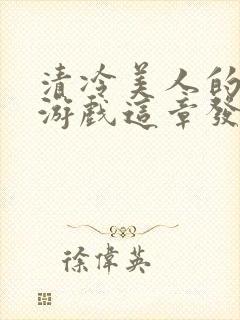 清冷美人的
游戲這章發
徐偉英